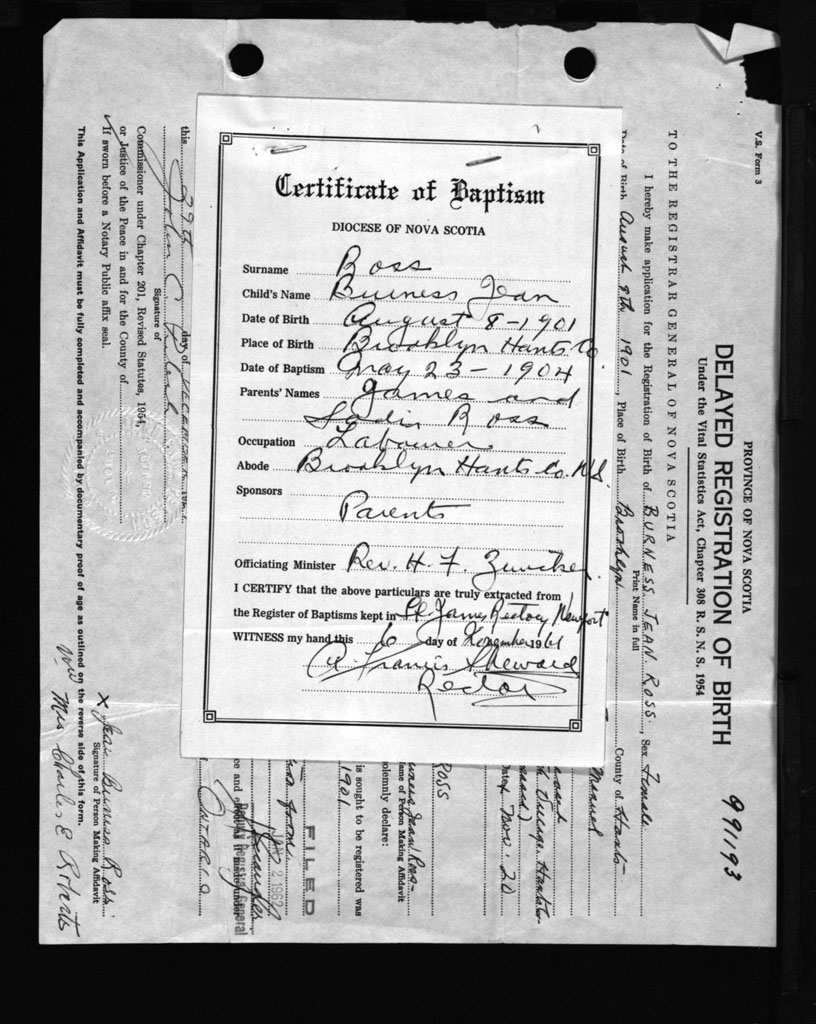 Certificate of Baptism
DIOCESE OF NOVA SCOTIA
Surname Ross
Child's Name Burness Jean
Date of Birth August 8-1901
Place of Birth Brooklyn Hants Co.
Date of Baptism May 23-1904
Parents' Names James and
Sadie Ross
Occupation Labourer
Abode Brooklyn Hants Co. N.S.
Sponsors
Parents
Officiating Minister Rev. H. F. Zwicker
I CERTIFY that the above particulars are truly extracted from
the Register of Baptisms kept in St. James Rectory Newport
WITNESS my hand this 6 day of November 1961
A. Francis Sheward
Rector
V.S. Form 3
PROVINCE OF NOVA SCOTIA
DELAYED REGISTRATION OF BIRTH
Under the Vital Statistics Act, Chapter 308 R. S. N. S. 1954
991193
TO THE REGISTRAR GENERAL OF NOVA SCOTIA
I hereby make application for the Registration of Birth of BURNESS JEAN ROSS Sex Female
Print Name in full
Date of Birth August 8th 1901, Place of Birth Brooklyn County of Hants
Village, Hants
Nov. 20
ROSS
Jean Ross
Name of Person Making Affidavit
solemnly declare:
is sought to be registered was
1901
FILED
2 1962
Deputy Registrar General
ONTARIO
this 29th day of DECEMBER
John C.
Signature of
Commissioner under Chapter 201, Revised Statutes, 1954,
or Justice of the Peace in and for the County of
If sworn before a Notary Public affix seal.
X Jean Burness Ross
Signature of Person Making Affidavit
This Application and Affidavit must be fully completed and accompanied by documentary proof of age as outlined on the reverse side of this form.
Mrs Charles E Roberts